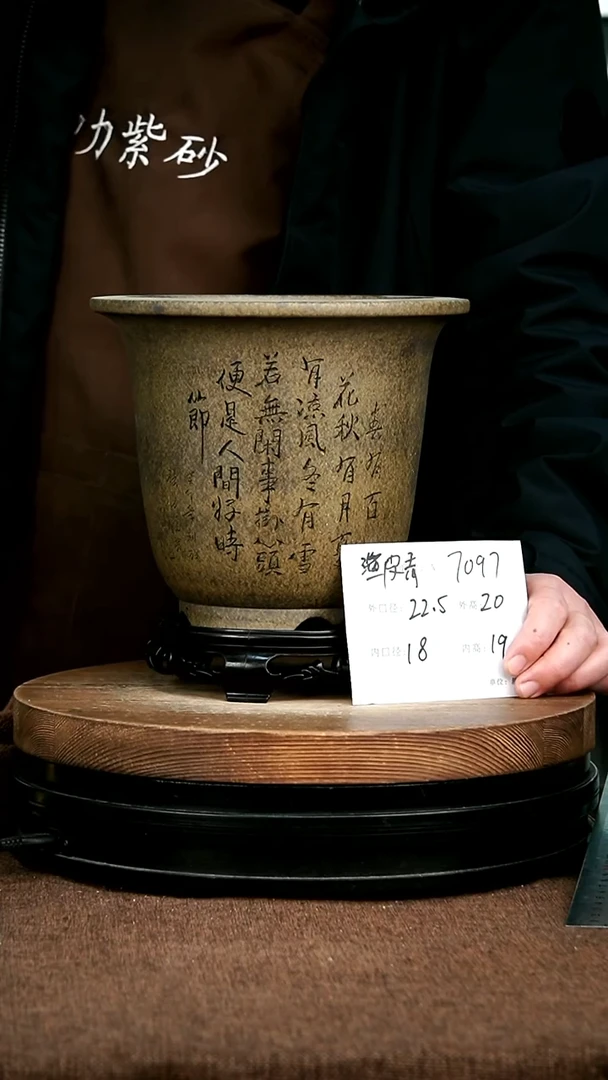 功紫砂
春有百
花秋有月
有凉風冬有雪
若無閑事掛心頭
便是人間好時
節
皮青 7097
外口径: 22.5 外高: 20
内口径: 18 内高: 19
单位: